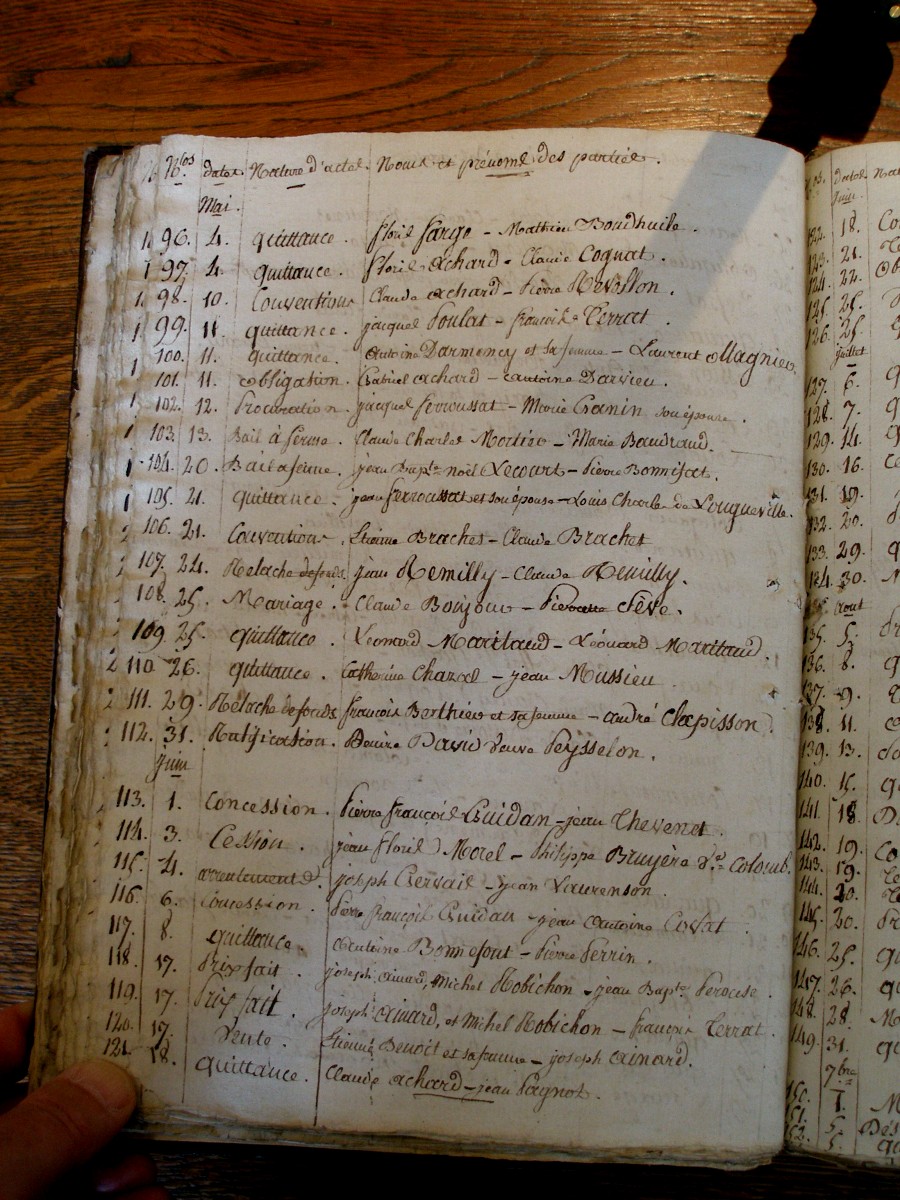 Nos dates Nature d'actes. Noms et prénoms des parties.
Mai.
96. 4. quittance. floris fargo - Mathieu Boudhuile.
97. 4. quittance. floris achard - Claude Coquat.
98. 10. Conventions Claude achard - Pierre Revollon.
99. 11. quittance. jacques Poulat - françois Terrat.
100. 11. quittance. antoine Darmency et sa femme - Laurent Magnien.
101. 11. obligation. Gabriel achard - antoine Darvieu.
102. 12. Procuration. jacques ferroussat - Marie Granin son épouse.
103. 13. Bail à ferme. Claude Charles Mortier - Marie Baudrand.
104. 20. Bail a ferme. jean Bapte noël Lecourt - Pierre Bonnifat.
105. 21. quittance. jean ferroussat et son épouse - Louis Charle de Longueville.
106. 21. Conventions. Etienne Braches - Claude Brachet
107. 24. Relache de fonds jean Remilly - Claude Remilly.
108. 25. Mariage. Claude Boujour - Pierrette Céve.
109. 25. quittance. Léonard Maritaud - Léonard Marittaud.
110. 26. quittance. Catherine Chazal - jean Mussieu.
111. 29. Relache de fonds françois Berthier et sa femme - andré Clapisson
112. 31. Ratification. Benire David veuve Peysselon.
juin
113. 1. Concession. Pierre françois Guidan - jean Thevenet.
114. 3. Cession. jean floris Morel - Philippe Bruyère Ve Colomb.
115. 4. joseph Gervais - jean Laurenson.
116. 6. Concession. Pierre françois Guidan - jean antoine
117. 8. quittance. antoine Bonnefont - Pierre Perrin.
118. 17. Prix fait. joseph ainard, Michel Robichon - jean Bapte Perouse.
119. 17. Prix fait. joseph ainard, et Michel Robichon - françois Terrat.
120. 17. Vente. Etienne Benoit et sa femme - joseph ainard.
121. 18. quittance. Claude achard - jean Pagnot.
dates
juin
122. 18.
123. 21.
124. 22.
125. 25.
126. 25.
juillet
127. 6.
128. 7.
129. 14.
130. 16.
131. 19.
132. 20.
133. 29.
134. 30.
aout
135. 5.
136. 8.
137. 9.
138. 11
139. 13.
140. 15.
141. 18.
142. 19.
143. 19.
144. 20.
145. 20.
146. 25.
147. 26.
148. 28.
149. 31.
7bre
150. 1.
151. 5.
152. 5.